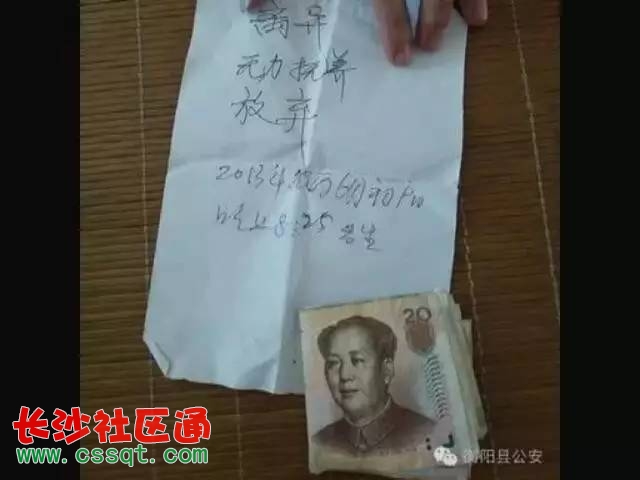 离异
无力抚养
放弃
2013年农历6月初十
晚上8:25出生
20
长沙社区通
www.cssqt.com
衡阳县公安